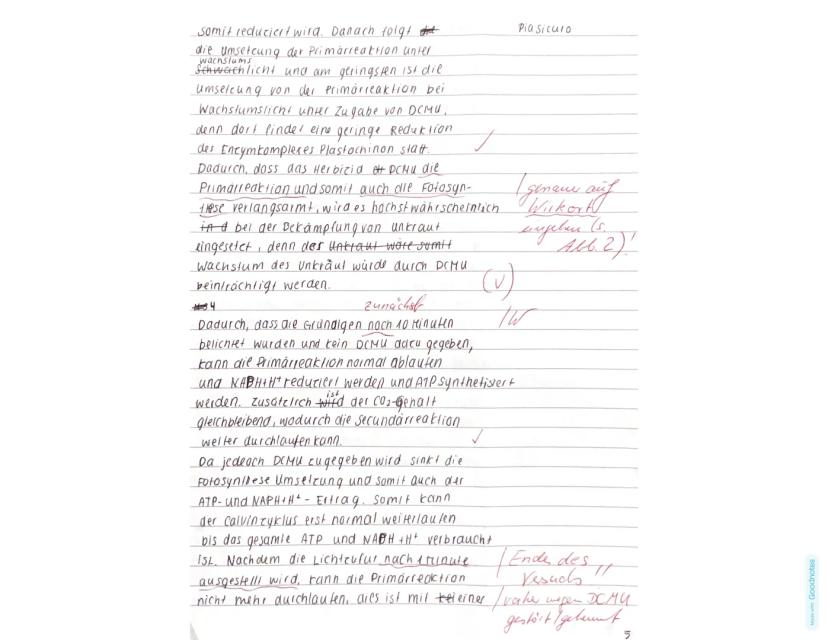 somit reduciert wird. Danach folgt
Pia Sicuro
die Umsetzung der Primärreaktion unter
wachstums
schwachlicht und am geringsten ist die
Umsetzung von der Primärreaktion bei
Wachstumslicht unter Zugabe von DCMU,
denn dort findet eine geringe Reduktion
des Enzymkomplexes Plastochinon statt.
Dadurch, dass das Herbizid DCMU die
Primärreaktion und somit auch die Fotosyn-
these verlangsamt, wird es höchstwahrscheinlich
genauer auf
Wirkort
in d bei der Bekämpfung von Unkraut
eingehen (s.
eingesetzt, denn des Unkraut wäre somit
Abb. 2)!
Wachstum des Unkraut würde durch DCMU
beinträchtigt werden.
(√)
4
zunächst
Dadurch, dass die Grünalgen nach 10 Minuten
W
belichtet wurden und kein DCMU dazu gegeben,
kann die Primärreaktion normal ablaufen
und NADH+H⁺ reduciert werden und ATP synthetisiert
ist
werden. Zusätzlich wird der CO₂-Gehalt
gleichbleibend, wodurch die Secundärreaktion
weiter durchlaufen kann.
Da jedoch DCMU zugegeben wird sinkt die
Fotosynthese Umsetzung und somit auch der
ATP- und NAPH+H⁺ - Ertrag. Somit kann
der Calvinzyklus erst normal weiterlaufen
bis das gesamte ATP und NADH +H⁺ verbraucht
ist. Nachdem die Lichtzufur nach 1 Minute
Ende des
ausgestellt wird, kann die Primärreaktion
Versuchs
nicht mehr durchlaufen, dies ist mit einer
vorher wegen DCMU
gestört / gehemmt
5
Made with Goodnotes